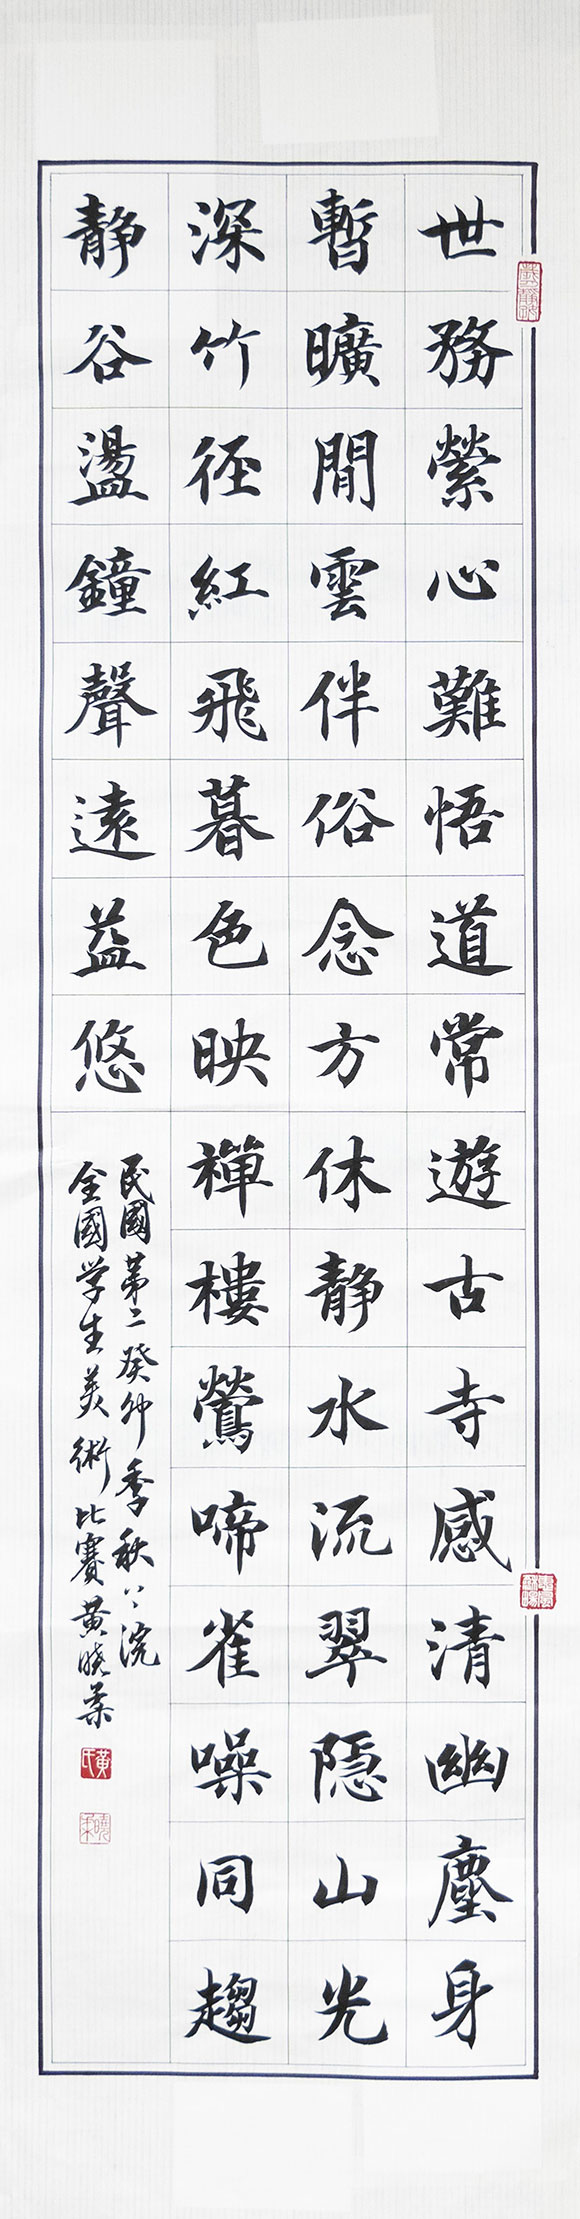 世務縈心難悟道常遊古寺感清幽塵身
暫曠閒雲伴俗念方休靜水流翠隱山光
深竹徑紅飛暮色映禪樓鶯啼雀噪同趨
靜谷盪鐘聲遠益悠
民國第二癸卯季秋
全國学生美術比賽黃曉柔
黃氏
曉柔